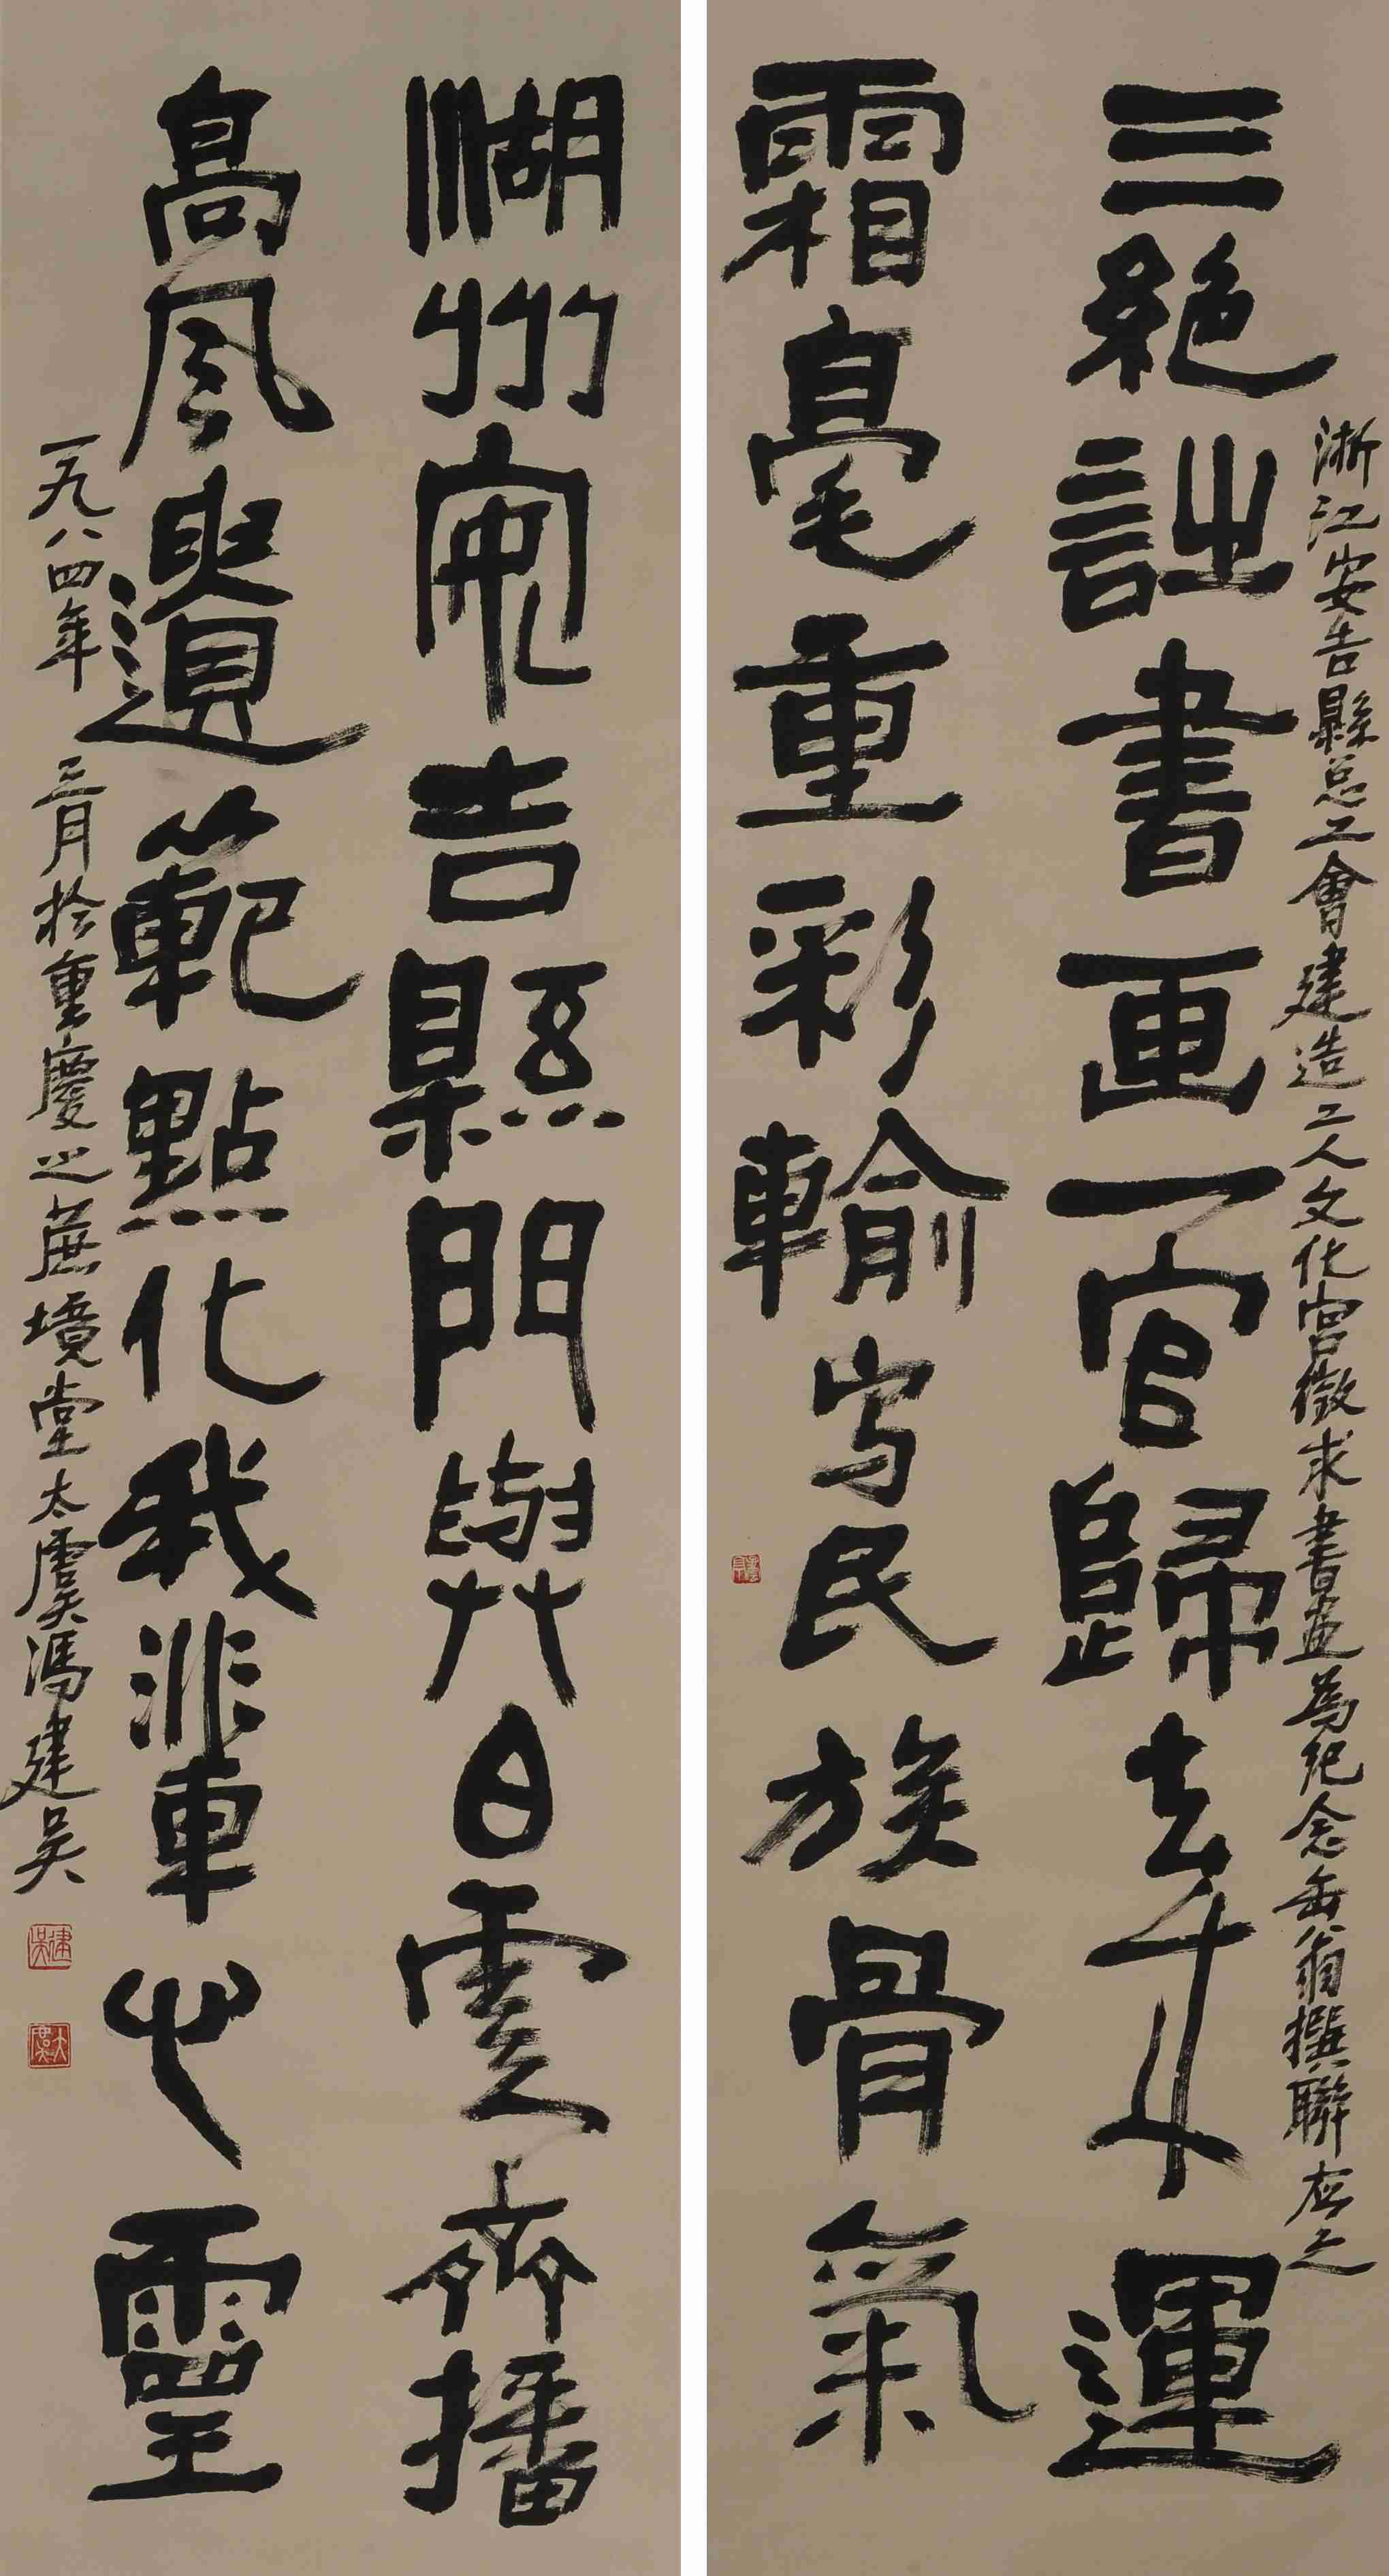 浙江安吉縣总工會建造工人文化宮徵求書画為紀念缶翁撰聯应之
三絕詩書画一官歸去來運
霜毫重彩輸写民族骨氣
湖州安吉縣門與白雲齊播
高風遺範點化我輩心靈
一九八四年三月於重慶之蔗境堂太虞馮建吴
建吳
太虞